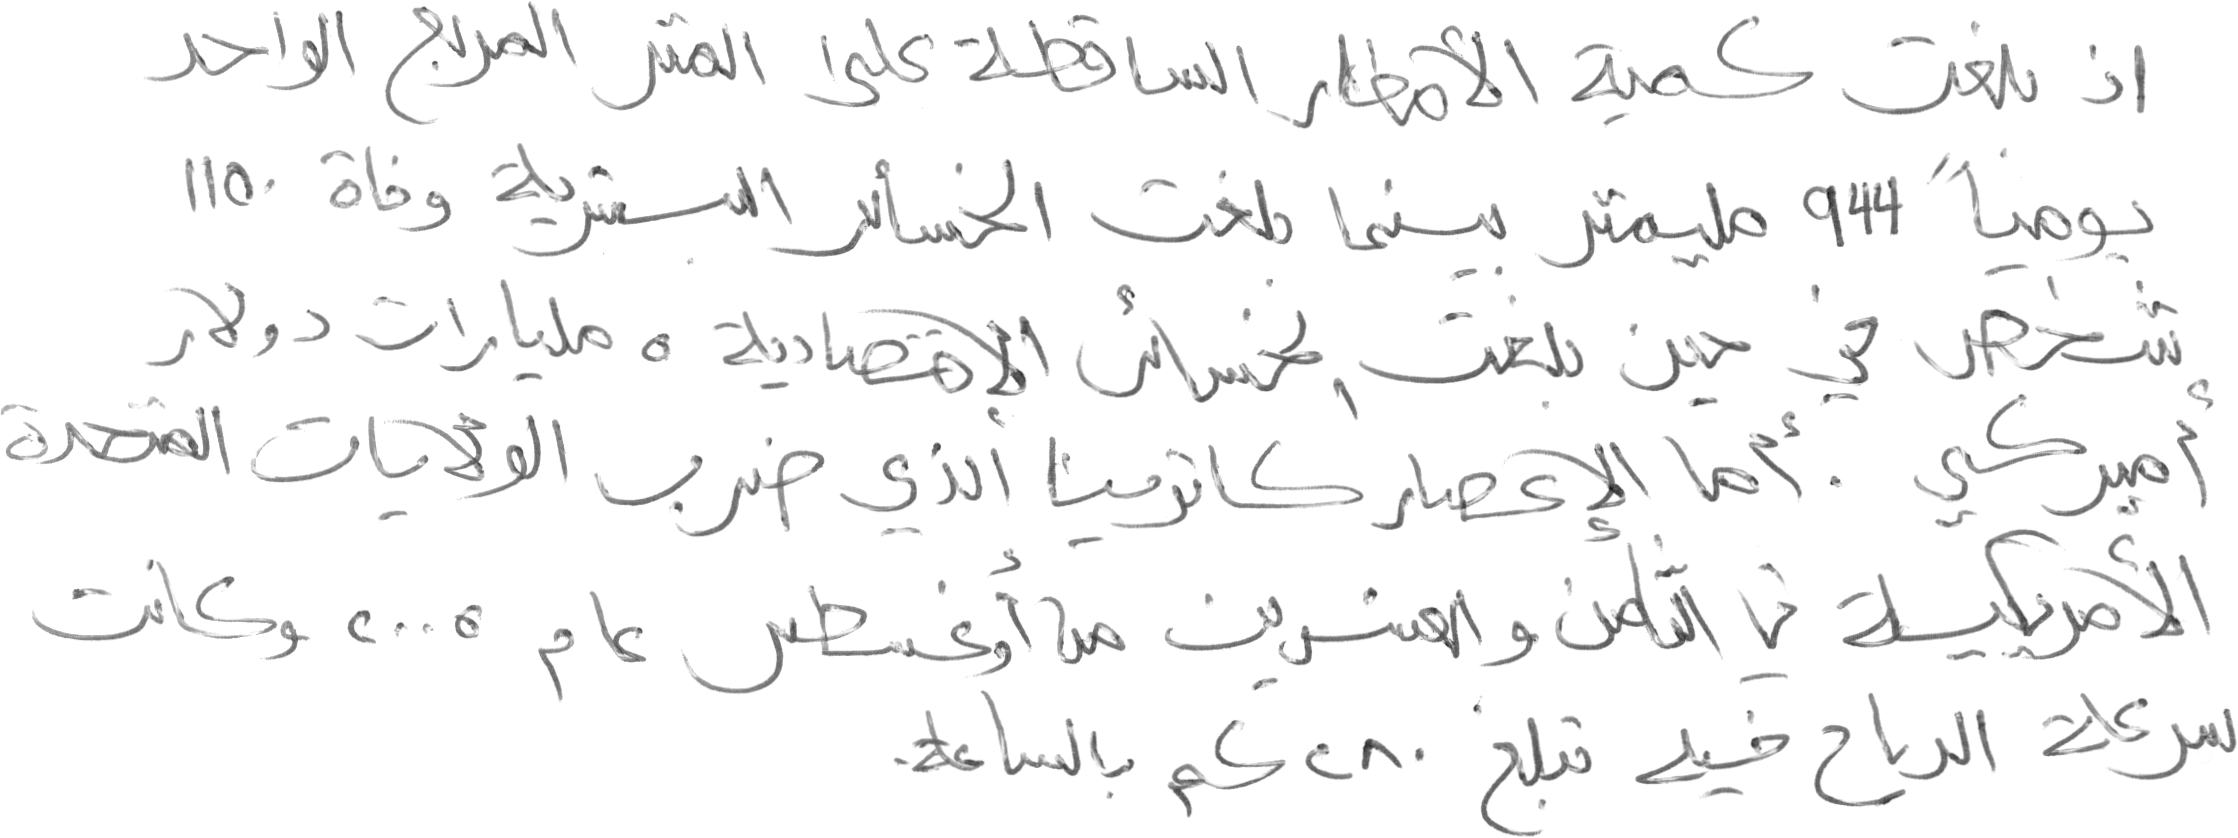 اذ بلغت كمية الأمطار الساقطة على المتر المربع الواحد
يومياً 944 مليمتر بينما بلغت الخسأئر البشرية وفاة ١١٥٠
شخص في حين بلغت الخسائر الإقتصادية ٥ مليارات دولار
أميركي . أما الإعصار كاترينا الذي ضرب الولايات المتحدة
الأمريكية في الثامن والعشرين من أوغسطس عام ٢٠٠٥ وكانت
سرعة الرياح فيه تبلغ ٢٨٠ كم بالساعة.